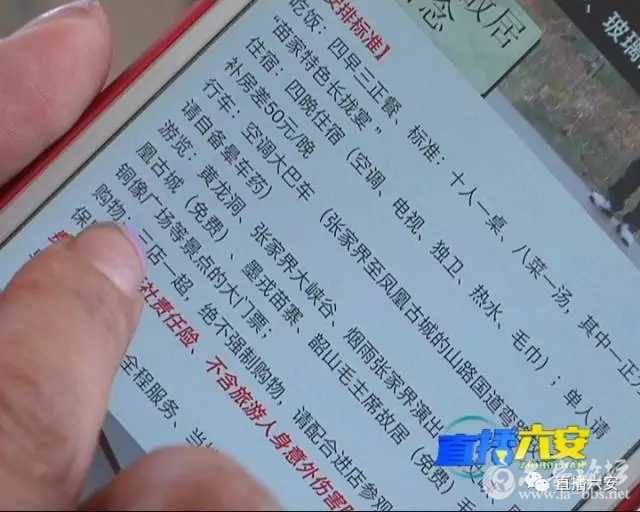 故居
念
、玻璃
安排标准】
吃饭：四早三正餐、标准：十人一桌、八菜一汤，其中一正
"苗家特色长拢宴"
住宿：四晚住宿（空调、电视、独卫、热水、毛巾）；单人请
补房差50元/晚
行车：空调大巴车（张家界至凤凰古城的山路国道弯
请自备晕车药）
游览：黄龙洞、张家界大峡谷、烟雨张家界演出
凰古城（免费）、墨戎苗寨、韶山毛主席故居（免费）毛
铜像广场等景点的大门票；
购物：三店一超，绝不强制购物，请配合进店参观
保
社责任险、不含旅游人身意外伤害
全程服务、当
直播六安
直播六安
www.la-bbs.net